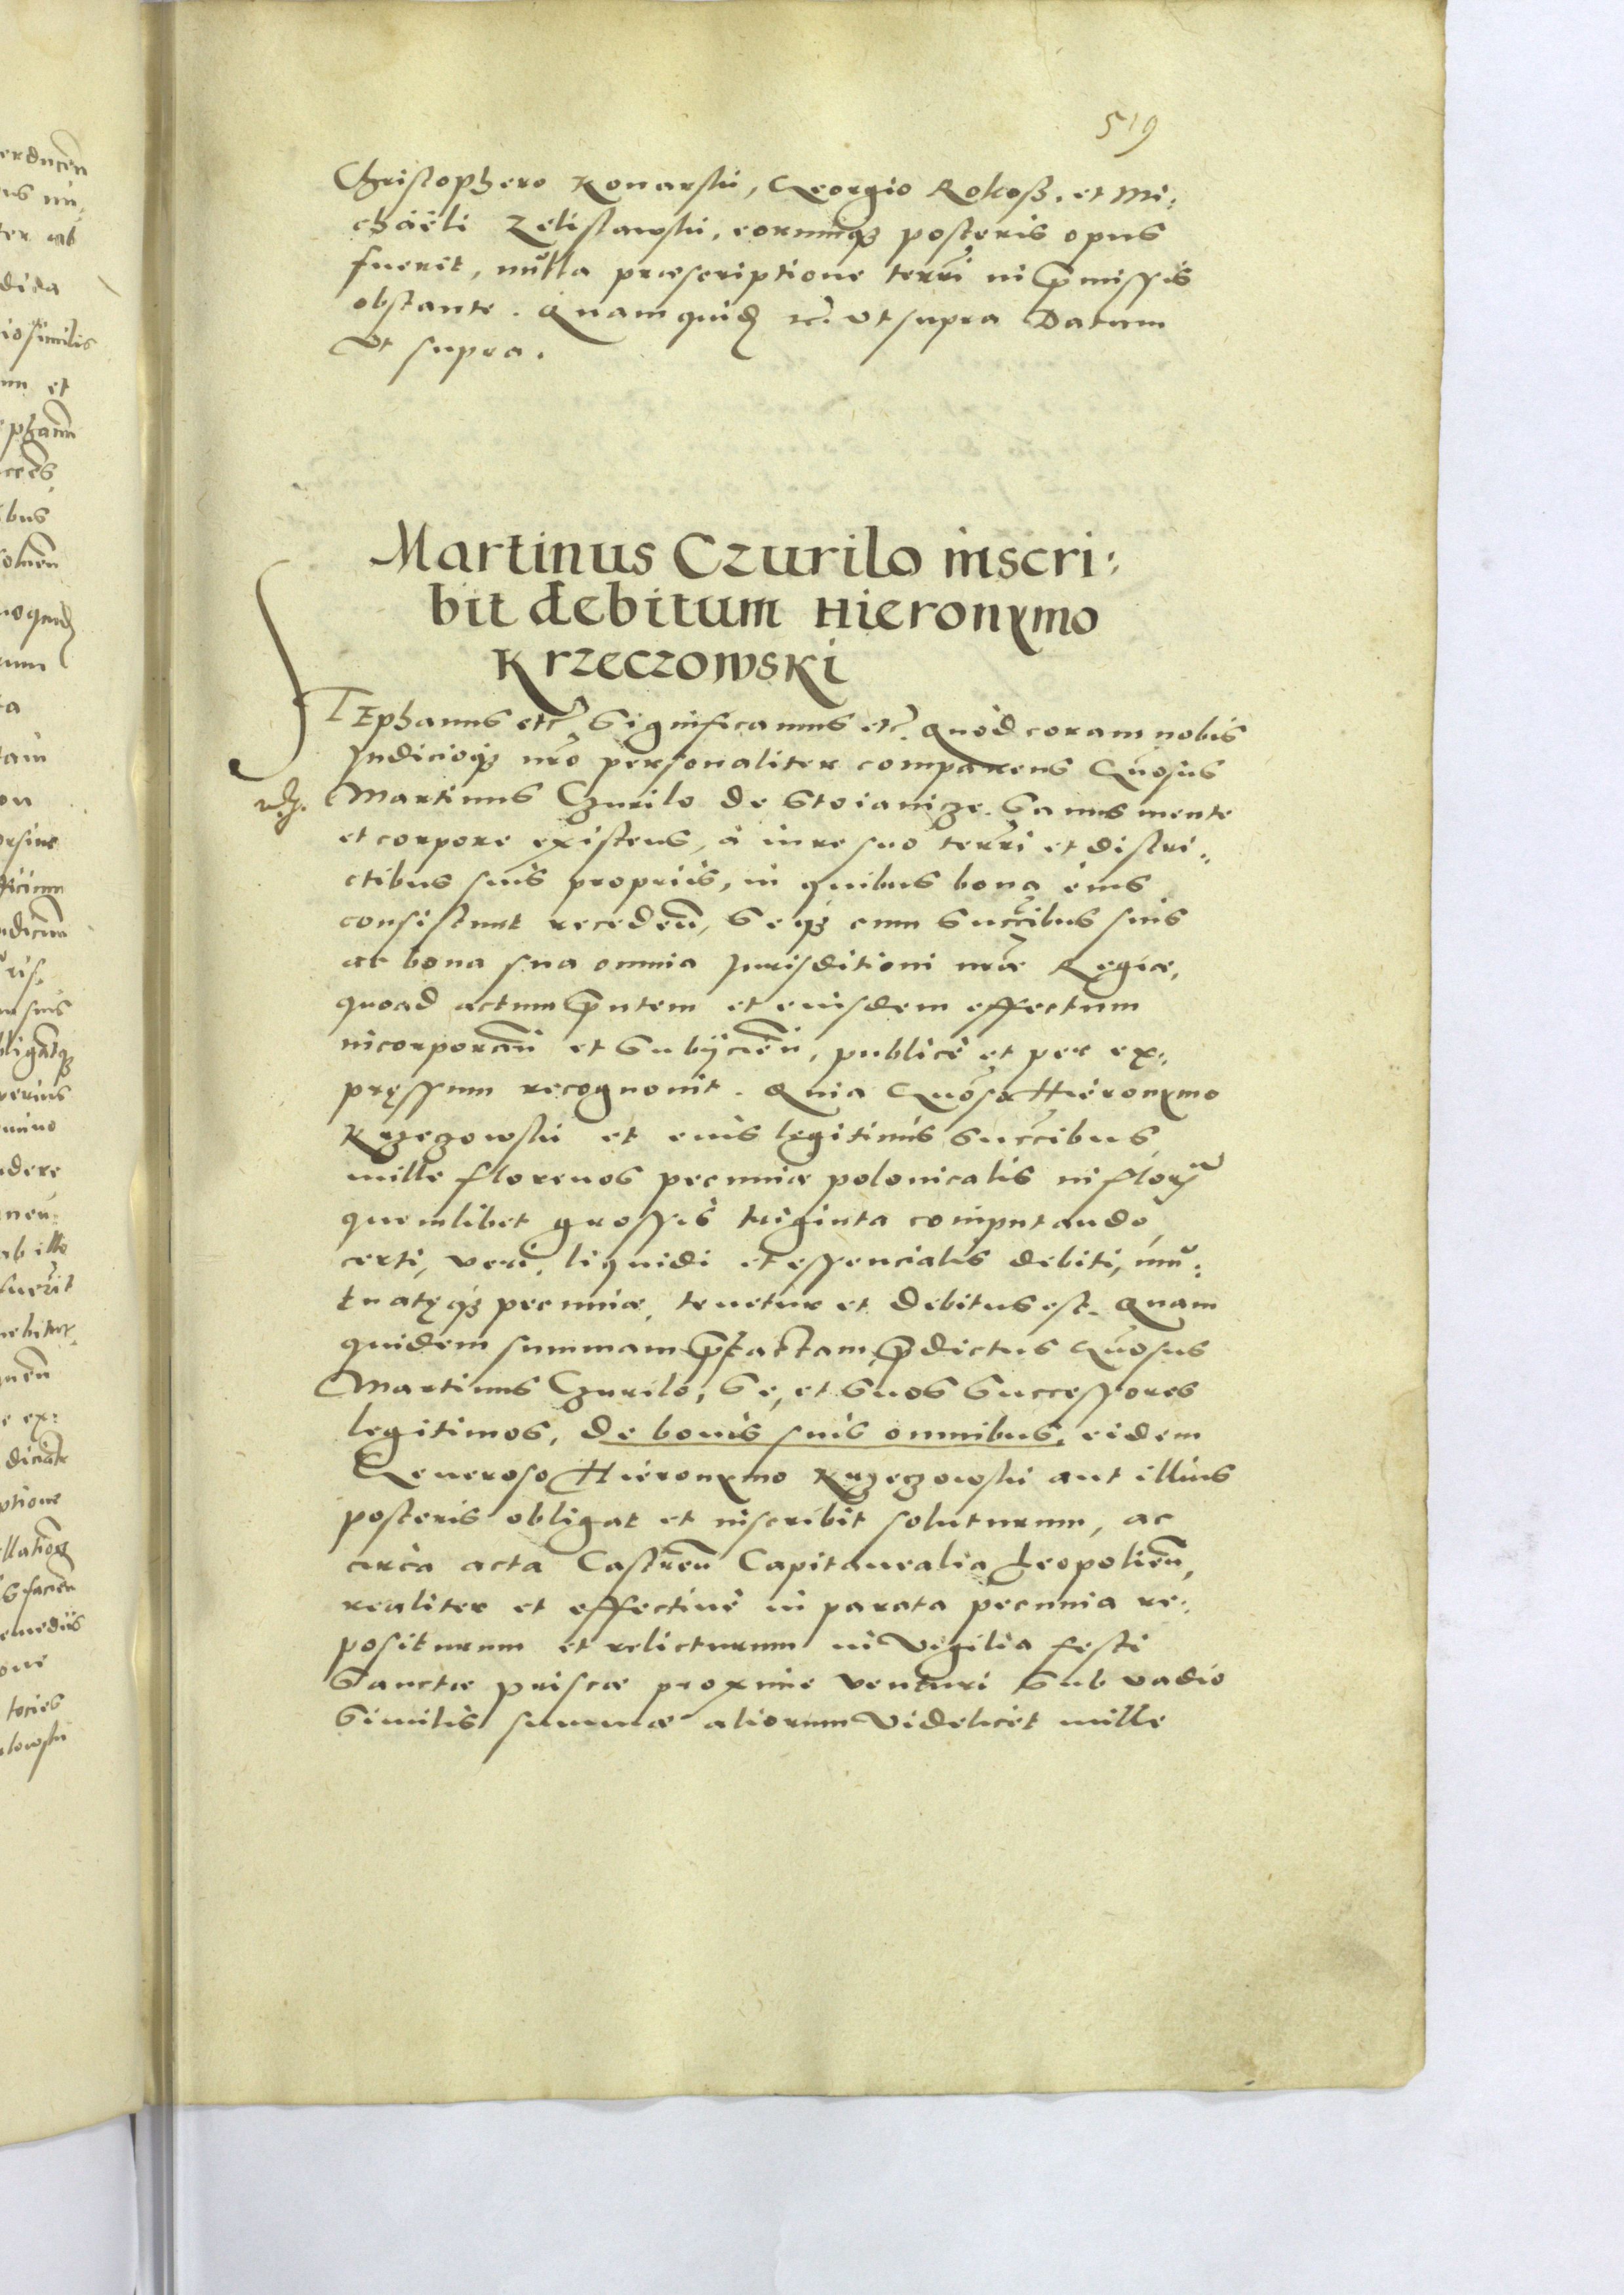 519
Christophero Konarski, Georgio Rokoß. et Mi:
chaëli Zelislawski, eorumq₃ posteris opus
fuerit, nulla præscriptione terrī in p̄missis
obstante. Quam quid̄ &c. vt supra Datum
Vt supra.
Martinus Czurilo inscri:
bit debitum Hieronymo
Krzeczowski
STEphanus etc. Significamus etc. quòd coram nobis
Iudicioq₃ nr̄o personaliter comparens Gn̄osus
Martinus Czurilo de Stoianicze. Sanus mente
et corpore existens, à iure suo terrī et distri:
ctibus suis propriis, in quibus bona eius
consistunt receden̄, Seq₃ cum Succ̄ibus suis
ac bona sua omnia Jurisditioni nr̄æ Regiæ,
quoad actum p̄ntem et eiusdem effectum
incorporan̄ et Subijcien̄, publicè et per ex:
pręssum recognouit. Quia Gn̄oso Hieronymo
Krzeczowski et eius legitimis Succ̄ibus
mille florenos pecuniæ polonicalis in flor̄
quemlibet grossis triginta computando,
certi, veri, liquidi et essencialis debiti, mu:
tuatęq₃ pecuniæ, tenetur et debitus est. Quam
quidem summam p̄factam, p̄dictus Gn̄osus
Martinus Czurilo, Se, et Suos Successores
legitimos, de bonis suis omnibus, eidem
Generoso Hieronymo Krzeczowski aut illius
posteris obligat et inscribit soluturum, ac
circa acta Castren̄ Capitanealia Leopolien̄,
realiter et effectiuè in parata pecunia re:
positurum et relicturum in Vigilia festi
Sanctæ Priscæ proxime venturi Sub vadio
Similis summæ aliorum videlicet mille